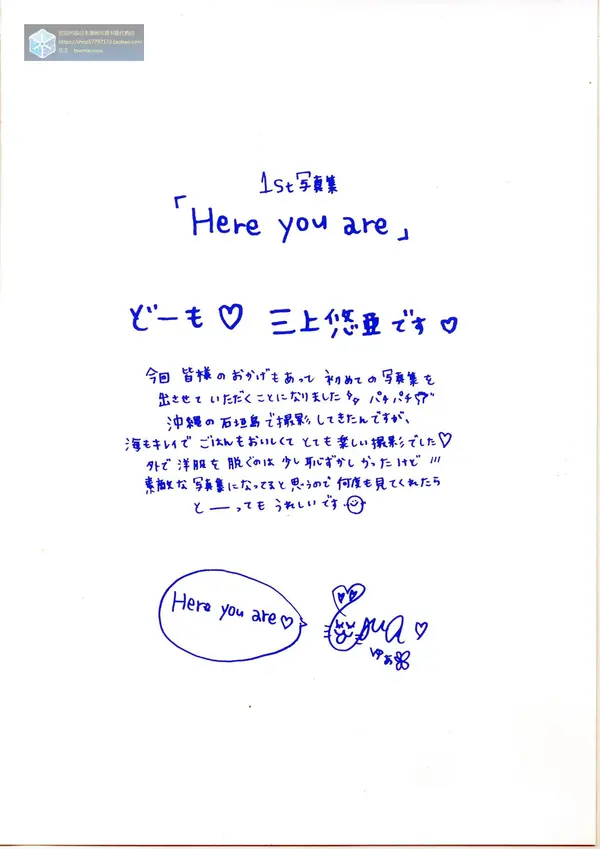 https://shop57797173.taobao.com
1st写真集
「Here you are」
どーも♡ 三上悠亜です♡
今回 皆様のおかげもあって 初めての写真集を
出させていただくことになりました パチパチ
沖縄の石垣島で撮影してきたんですが、
海もキレイで ごはんもおいしくて とても楽しい撮影でした♡
外で洋服を脱ぐのは少し恥ずかしかったけど !!!
素敵な写真集になってると思うので何度も見てくれたら
と――っても うれしいです
Here you are♡
yua♡
ゆあ